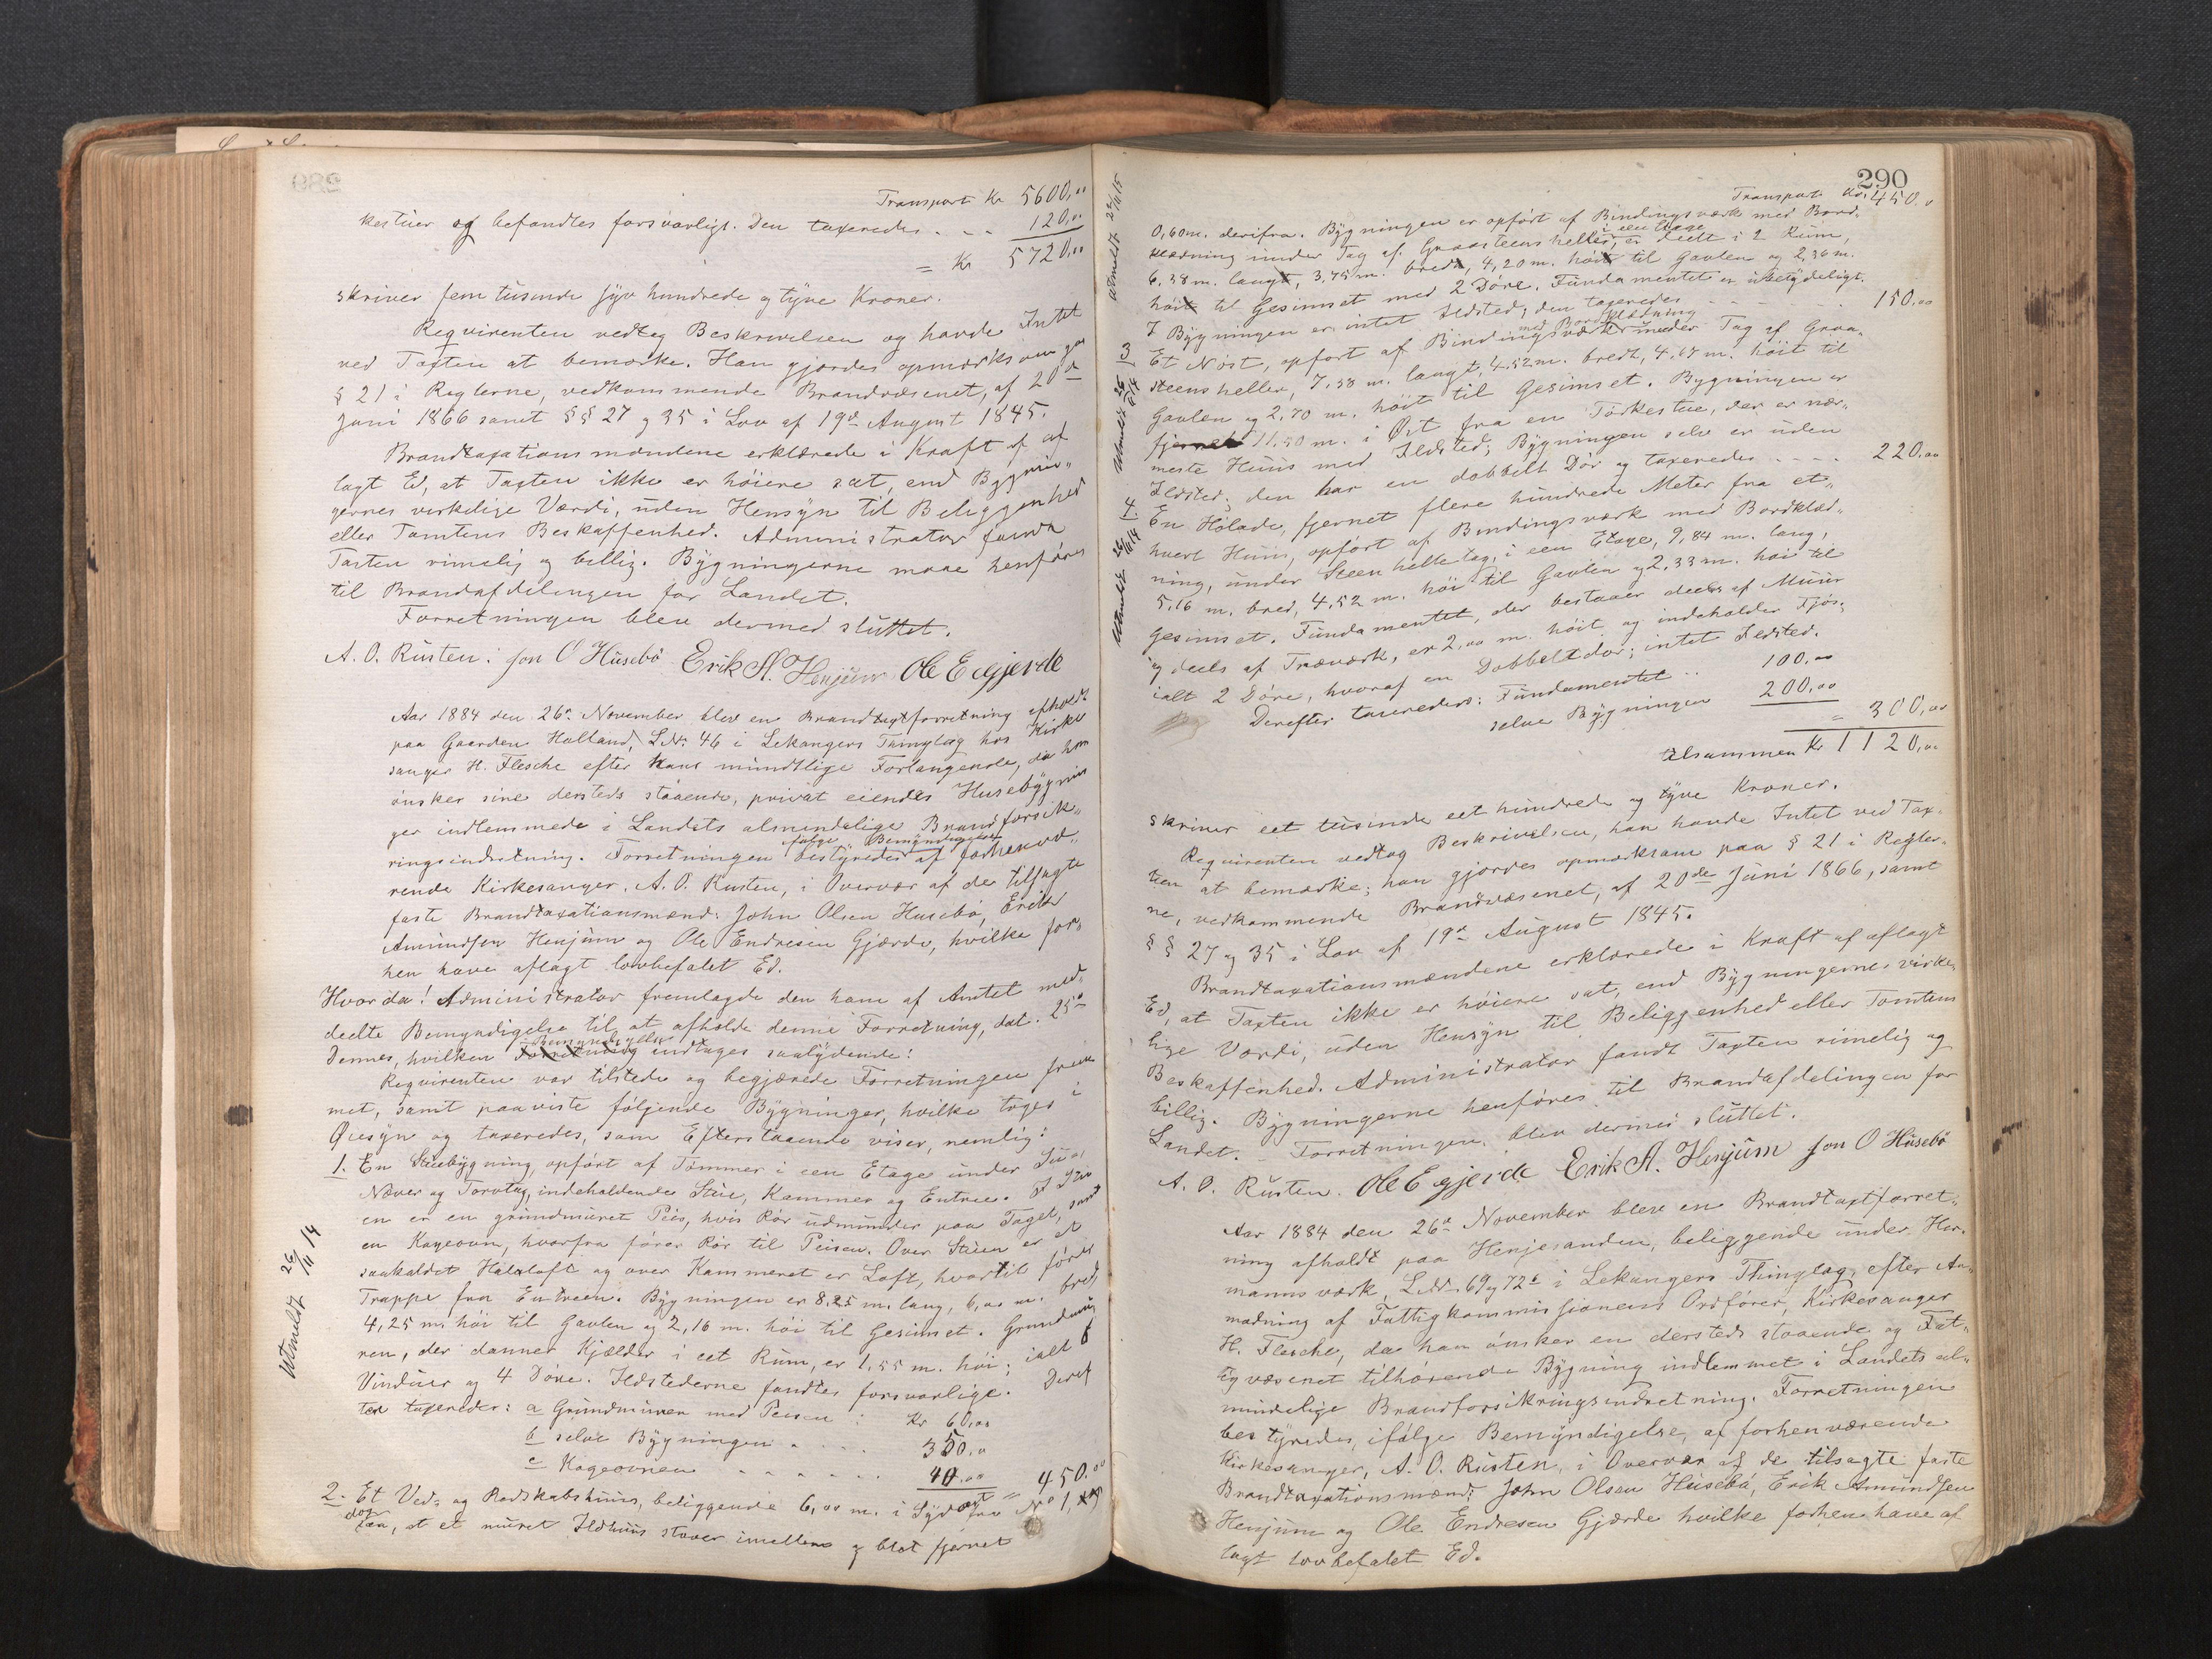 Transport Kr 5600,00
kestuer og befandtes forsvarligt. Den taxeredes . . . 120,00
= Kr 5720,00
skriver fem tusinde syv hundrede og tyve Kroner.
Reqvirenten vedtog Beskrivelsen og havde Intet
ved Taxten at bemærke. Han gjordes opmærksom paa
§ 21 i Reglerne, vedkommende Brandvæsenet, af 20de
Juni 1866 samt §§ 27 og 35 i Lov af 19de August 1845.
Brandtaxationsmændene erklærede i Kraft af af
lagt Ed, at Taxten ikke er høiere sat, end Bygnin„
gernes virkelige Værdi, uden Hensyn til Beliggenhed
eller Tomtens Beskaffenhed. Administrator fandt
Taxten rimelig og billig. Bygningerne maae henføres
til Brandafdelingen for Landet.
Forretningen blev dermed sluttet.
A. O. Rusten. Jon O Husebö Erik A. Henjum Ole E Gjerde
Aar 1884 den 26de November blev en Brandtaxtforretning afholdt
paa Gaarden Halland, L.Nr. 46 i Lekangers Thinglag hos Kirke
sanger H. Flesche efter hans mundtlige Forlangende, da han
ønsker sine dersteds staaende, privat eiendes Husebygnin
ger indlemmede i Landets almindelige Brandforsik„
ringsindretning. Forretningen bestyredes ifølge Bemyndigelse af forhenvæ„
rende Kirkesanger, A. O. Rusten, i Overvær af de tilsagte
faste Brandtaxationsmænd: John Olsen Husebö, Erik
Amundsen Henjum og Ole Endresen Gjærde, hvilke for„
hen have aflagt lovbefalet Ed.
Hvorda! Administrator fremlagde den ham af Amtet med„
deelte Bemyndigelse til at afholde denne Forretning, dat. 25de
Dennes, hvilken Bemyndigelse indtages saalydende:
Reqvirenten var tilstede og begjærede Forretningen frem
met, samt paaviste følgende Bygninger, hvilke toges i
Øiesyn og taxeredes, som Efterstaaende viser, nemlig:
1. En Stuebygning, opført af Tømmer i een Etage under
Næver og Torvtag, indeholdende Stue, Kammer og Entree. I Stu
en er en grundmuret Peis, hvis Rør udmunder paa Taget, samt
en Kogeovn, hvorfra fører Rør til Peisen. Over Stuen er et
saakaldet Halvloft og over Kammeret er Loft, hvortil fører
Trappe fra Entreen. Bygningen er 8,25 m. lang, 6,00 m. bred
4,25 m. høi til Gavlen og 2,16 m. høi til Gesimset. Grundmu
ren, der danner Kjælder i eet Rum, er 1,55 m. høi; ialt 6
Vinduer og 4 Døre. Ildstederne fandtes forsvarlige. Deref
ter taxeredes: a Grundmuren med Peisen : Kr 60,00
b selve Bygningen . . . . 350,00
c Kogeovnen . . . . . 40,00 = 450,00
Utmeldt 26/11 14
2. Et Ved„ og Redskabshuus, beliggende 6,00 m. i Sydøst fra No 1,
dog saa, at et muret Ildhuus staaer imellem og blot fjernet
290
Transport Kr. 450,00
0,60 m. derifra. Bygningen er opført af Bindingsværk med Bord„
klædning under Tag af Graasteensheller, i een Etage, er deelt i 2 Rum,
6,38 m. langt, 3,75 m. bredt, 4,20 m. høit til Gavlen og 2,36 m.
høit til Gesimset med 2 Døre. Fundamentet er ubetydeligt.
I Bygningen er intet Ildsted; den taxeredes . . . . 150,00
3 Et Nøst, opført af Bindingsværk med Bordklædning under Tag af Graa„
steensheller, 7,38 m. langt, 4,52 m. bredt, 4,67 m. høit til
Gavlen og 2,70 m. høit til Gesimset. Bygningen er
fjernet 11,50 m. i Øst fra en Tørkestue, der er nær„
meste Huus med Ildsted; Bygningen selv er uden
Ildsted; den har en dobbelt Dør og taxeredes . . . . 220,00
4. En Hølade, fjernet flere hundrede Meter fra et„
hvert Huus, opført af Bindingsværk med Bordklæd„
ning, under Steenhelletag, i een Etage, 9,84 m. lang,
5,16 m. bred, 4,52 m. høi til Gavlen og 2,33 m. høi til
Gesimset. Fundamentet, der bestaaer deels af Muur
og deels af Træværk, er 2,00 m. høit og indeholder Fjøs;
ialt 2 Døre, hvoraf en Dobbeltdør; intet Ildsted.
Derefter taxeredes: Fundamentet .. 100,00
selve Bygningen 200,00
= 300,00
tilsammen Kr 1120,00
skriver eet tusinde eet hundrede og tyve Kroner.
Reqvirenten vedtog Beskrivelsen, han havde Intet ved Tax„
ten at bemærke; han gjordes opmærksom paa § 21 i Regler„
ne, vedkommende Brandvæsenet, af 20de Juni 1866, samt
§ § 27 og 35 i Lov af 19de August 1845.
Brandtaxationsmændene erklærede i Kraft af aflagt
Ed, at Taxten ikke er høiere sat, end Bygningernes virke„
lige Værdi, uden Hensyn til Beliggenhed eller Tomtens
Beskaffenhed. Administrator fandt Taxten rimelig og
billig. Bygningerne henføres til Brandafdelingen for
Landet. – Forretningen blev dermed sluttet.
A. O. Rusten. Ole E Gjerde Erik A. Henjum Jon O Husebö
Aar 1884 den 26de November blev en Brandtaxtforret„
ning afholdt paa Henjesanden, beliggende under Her„
mannsværk, L.Nr. 69 og 72 i Lekangers Thinglag, efter An„
modning af Fattigkommissionens Ordfører, Kirkesanger
H. Flesche, da han ønsker en dersteds staaende og Fat„
tigvæsenet tilhørende Bygning indlemmet i Landets al„
mindelige Brandforsikringsindretning. Forretningen
bestyredes, ifølge Bemyndigelse, af forhenværende
Kirkesanger, A. O. Rusten, i Overvær af de tilsagte faste
Brandtaxationsmænd: John Olsen Husebö, Erik Amundsen
Henjum og Ole Endresen Gjærde hvilke forhen have af
lagt lovbefalet Ed.